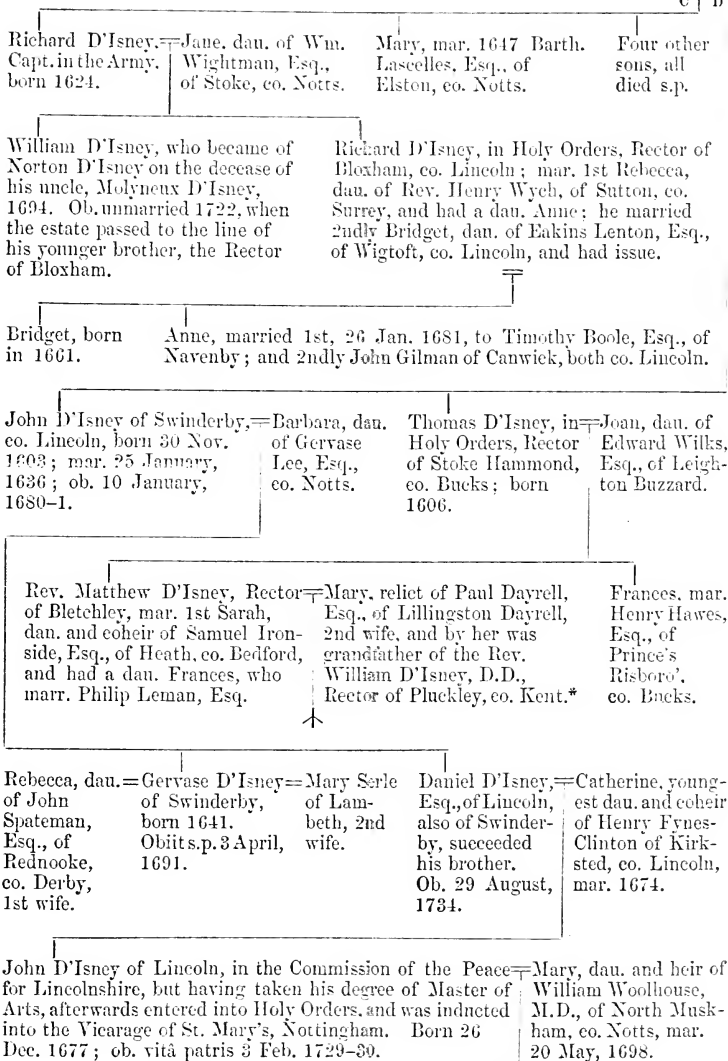 C D
Richard D'Isney,
Capt. in the Army,
born 1624.
Jane, dau. of Wm.
Wightman, Esq.,
of Stoke, co. Notts.
Mary, mar. 1647 Barth.
Lascelles, Esq., of
Elston, co. Notts.
Four other
sons, all
died s.p.
William D'Isney, who became of
Norton D'Isney on the decease of
his uncle, Molyneux D'Isney,
1694. Ob. unmarried 1722, when
the estate passed to the line of
his younger brother, the Rector
of Bloxham.
Richard D'Isney, in Holy Orders, Rector of
Bloxham, co. Lincoln; mar. 1st Rebecca,
dau. of Rev. Henry Wych, of Sutton, co.
Surrey, and had a dau. Anne; he married
2ndly Bridget, dau. of Eakins Lenton, Esq.,
of Wigtoft, co. Lincoln, and had issue.
Bridget, born
in 1661.
Anne, married 1st, 26 Jan. 1681, to Timothy Boole, Esq., of
Navenby; and 2ndly John Gilman of Canwick, both co. Lincoln.
John D'Isney of Swinderby,
co. Lincoln, born 30 Nov.
1603; mar. 25 January,
1636; ob. 10 January,
1680–1.
=Barbara, dau.
of Gervase
Lee, Esq.,
co. Notts.
Thomas D'Isney, in
Holy Orders, Rector
of Stoke Hammond,
co. Bucks; born
1606.
=Joan, dau. of
Edward Wilks,
Esq., of Leigh-
ton Buzzard.
Rev. Matthew D'Isney, Rector
of Bletchley, mar. 1st Sarah,
dau. and coheir of Samuel Iron-
side, Esq., of Heath, co. Bedford,
and had a dau. Frances, who
marr. Philip Leman, Esq.
=Mary, relict of Paul Dayrell,
Esq., of Lillingston Dayrell,
2nd wife, and by her was
grandfather of the Rev.
William D'Isney, D.D.,
Rector of Pluckley, co. Kent.*
Frances, mar.
Henry Hawes,
Esq., of
Prince's
Risboro',
co. Bucks.
Rebecca, dau.
of John
Spateman,
Esq., of
Rednooke,
co. Derby,
1st wife.
=Gervase D'Isney
of Swinderby,
born 1641.
Obiit s.p. 3 April,
1691.
=Mary Serle
of Lam-
beth, 2nd
wife.
Daniel D'Isney,
Esq., of Lincoln,
also of Swinder-
by, succeeded
his brother.
Ob. 29 August,
1734.
=Catherine, young-
est dau. and coheir
of Henry Fynes-
Clinton of Kirk-
sted, co. Lincoln,
mar. 1674.
John D'Isney of Lincoln, in the Commission of the Peace
for Lincolnshire, but having taken his degree of Master of
Arts, afterwards entered into Holy Orders, and was inducted
into the Vicarage of St. Mary's, Nottingham. Born 26
Dec. 1677; ob. vitâ patris 3 Feb. 1729–30.
=Mary, dau. and heir of
William Woolhouse,
M.D., of North Musk-
ham, co. Notts, mar.
20 May, 1698.